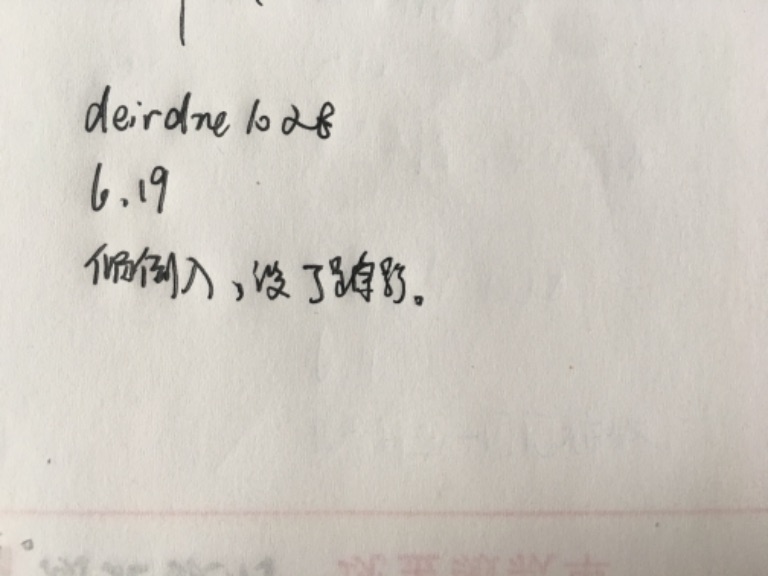 deirdne 1028
6.19
倾倒入，没了踪影。